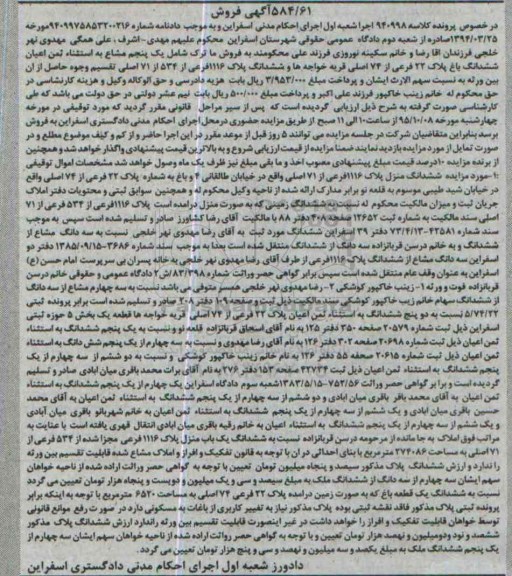 ۵۸۴/۶۱آگهی فروش
در خصوص پرونده کلاسه ۹۴۰۹۹۸ اجرا شعبه اول اجرای احکام مدنی اسفراین و به موجب دادنامه شماره ۹۴۰۹۹۷۵۸۵۳۲۰۰۳۱۶مورخه
۱۳۹۴/۰۳/۲۵صادره از شعبه دوم دادگاه عمومی حقوقی شهرستان اسفراین محکوم علیهم مهدی-اشرف ، علی همگی مهدوی نهر
خلجی فرزندان اقا رضا و خانم سکینه نوروزی فرزند علی محکومند به فروش ما ترک شامل یک پنجم مشاع به استثناء ثمن اعیان
ششدانگ باغ پلاک ۲۲ فرعی از ۷۴ اصلی قریه خواجه ها و ششدانگ پلاک ۱۱۱۶فرعی از ۵۳۴ از ۷۱ اصلی تقسیم وجوه حاصل از ان
بین ورثه به نسبت سهم الارث ایشان و پرداخت مبلغ ۳/۹۵۳/۰۰۰ ریال بابت هزیه دادرسی و حق الوکاله وکیل و هزینه کارشناسی در
حق محکوم له خانم زینب خاکپور فرزند علی اکبر و پرداخت مبلغ ۵۰۰/۰۰۰ ریال بابت نیم عشر دولتی در حق دولت می باشد که طی
کارشناسی صورت گرفته به شرح ذیل ارزیابی گردیده است که پس از سیر مراحل قانونی مقرر گردید که مورد توقیفی در مورخه
چهارشنبه مورخه ۹۵/۱۰/۰۸ ازساعت۱۰الی ۱۱ صبح از طریق مزایده حضوری درمحل اجرای احکام مدنی دادگستری اسفراین به فروش
برسد بنابراین متقاضیان شرکت در جلسه مزایده می توانند ۵ روز قبل از موعد مقرر در این اجرا حاضر و از کم و کیف موضوع مطلع و در
صورت تمایل از مورد مزایده بازدید نمایند ضمنا مزایده از قیمت ارزیابی شروع و به بالاترین قیمت پیشنهادی واگذار خواهد شد و همچنین
از برنده مزایده ۱۰درصد قیمت مبلغ پیشنهادی مصوب اخذ و ما بقی مبلغ نیز ظرف یک ماه وصول خواهد شد مشخصات اموال توقیفی
:۱-مورد مزایده ششدانگ منزل پلاک ۱۱۱۶فرعی از ۷۱ اصلی واقع در خیابان طالقانی ۴ و باغ به شماره پلاک ۲۲ فرعی از ۷۴ اصلی واقع
در خیابان شید طیبی موسوم به قلعه نو برابر مدارک ارائه شده از ناحیه وکیل محکوم له و همچنین سوابق ثبتی و محتویات دفتر املاک
جریان ثبت و میزان مالکیت محکوم له نسبت به ششدانگ زمینی که به صورت منزل درامده است پلاک ۱۱۱۶فرعی از ۵۳۴ فرعی از ۷۱
اصلی سند مالکیت به شماره ثبت ۱۲۶۵۲ صفحه ۴۰۸ دفتر ۸۸ با مالکیت آقای رضا کشاورز صادر و تسلیم شده است سپس به موجب
سند شماره ۴۲۵۸۱-۷۳/۴/۱۳ دفتر ۲۹ اسفراین ششدانگ مورد ثبت به آقای رضا مهدوی نهر خلجی نسبت به سه دانگ مشاع از
ششدانگ و به خانم درسن قربانزاده سه دانگ از ششدانگ منتقل شده است بعدا به موجب سند شماره ۳۶۸۶-۱۳۸۵/۰۹/۱۵ دفتر دو
اسفراین سه دانگ مشاع از ششدانگ پلاک ۱۱۱۶فرعی از طرف آقای رضا مهدوی نهر خلجی به خانه پسران بی سرپرست امام حسن (ع)
اسفراین به عنوان وقف عام منتقل شده است سپس برابر گواهی حصر وراثت شماره ۸۳/۲۹۸/ش۲ دادگاه عمومی و حقوقی خانم درسن
قربانزاده فوت و ورثه ۱-زینب خاکپور کوشکی ۲-رضا مهدوی نهر خلجی همسر متوفی می باشد نسبت به سه چهارم مشاع از سه دانگ
از ششدانگ سهام خانم زیب خاکپور کوشکی سند مالکیت ذیل ثبت و صفحه ۱۴۹ دفتر ۲۰۸ صادر و تسلیم شده است برابر پرونده ثبتی
۵/۷۴/۲۲ نسبت به دو پنج ششدانگ به استثناء ثمن اعیان پلاک ۲۲ فرعی از ۷۴ اصلی قریه خواجه ها قطعه یک بخش ۵ حوزه ثبتی
اسفراین ذیل ثبت شماره ۲۰۵۷۹ صفحه ۳۵۰ دفتر ۱۲۵ به نام آقای اسحاق قربانزاده قلعه نو و نسبت به یک پنجم ششدانگ به استثناء
ثمن اعیان ذیل ثبت شماره ۲۰۶۹۸ صفحه ۳۰۲ دفتر ۱۲۶ به نام آقای رضا مهدوی و نسبت به سه چهارم از یک پنجم شش دانگ به استثناء
ثمن اعیان ذیل ثبت شماره ۲۰۶۱۵ صفحه ۵۵ دفتر ۱۲۶ به نام خانم زینب خاکپور کوشکی و نسبت به دو ششم از سه چهارم از یک
پنجم ششدانگ به استثناء ثمن اعیان ذیل ثبت ۴۲۷۳۴ صفحه ۱۵۲ دفتر ۲۷۶ به نام آقای برات محمد باقری میان ابادی صادر و تسلیم
گردیده است و برا بر گواهی حصر وراثت ۷۵۲/۵۶-۱۳۸۳/۵/۱۵شعبه سوم دادگاه اسفراین یک چهارم از یک پنجم ششدانگ به استثناء
ثمن اعیان به آقای محمد باقر باقری میان ابادی و دو ششم از سه چهارم از یک پنجم ششدانگ به استثناء ثمن اعیان به آقای محمد
حسین باقری میان ابادی و یک ششم از سه چهارم از یک پنجم ششدانگ به استثناء ثمن اعیان به خانم شهربانو باقری میان آبادی
و یک ششم از سه چهارم از یک پنجم ششدانگ به استثناء اعیان به خانم رقیه باقری میان ابادی انتقال قهری یافته است با عنایت به
مراتب فوق املاک به جا مانده از مرحومه درسن قربانزاده نسبت به ششدانگ یک باب منزل پلاک ۱۱۱۶ فرعی مجزا شده از ۵۳۴ فرعی از
۷۱ اصلی به مساحت ۲۷۴۰۸۶ مترمربع با بنای احداثی در ان با توجه به قانون تفکیک و افراز و املاک مشاع شده قابلیت تقسیم بین ورثه
را ندارد و ارزش ششدانگ پلاک مذکور سیصد و پنجاه میلیون تومان تعیین با توجه به گواهی حصر وراثت اراده شده از ناحیه خواهان
سهم ایشان سه چهارم از سه دانگ از ششدانگ ملک به مبلغ سیصد و سی و یک میلیون و دویست و پنجاه هزار تومان تعیین می گردد
نسبت به ششدانگ یک قطعه باغ که به صورت زمین درامده پلاک ۲۲ فرعی ۷۴ اصلی به مساحت ۶۵۲۰ مترمربع با توجه به اینکه برابر
پرونده ثبتی پلاک مذکور فاقد نقشه ثبتی بوده پلاک مذکور نیاز به تغییر کاربری از باغات به مسکونی دارد در صورت رفع موانع قانونی
توسط خواهان قابلیت تفکیک و افراز را خواهد داشت در غیر اینصورت قابلیت تقسیم بین ورثه راندارد ارزش ششدانگ پلاک مذکور
ششصد و نود ودومیلیون و نهصد هزار تومان تعیین و با توجه به گواهی حصر رواثت اراده شده از ناحیه خواهان سهم ایشان سه چهارم از
یک پنجم ششدانگ ملک به مبلغ یکصد و سه میلیون و نهصد و سی و پنج هزار تومان تعیین می گردد.
دادورز شعبه اول اجرای احکام مدنی دادگستری اسفراین